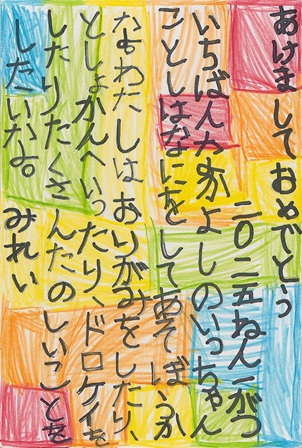 あけましておめでとう
二〇二五ねん一がつ
いちばんなかよしのいっちゃん
ことしはなにをしてあそぼうか
なあわたしはおりがみをしたり、
としょかんへいったり、ドロケイを
したりたくさんたのしいことを
したいなあ。 みれい